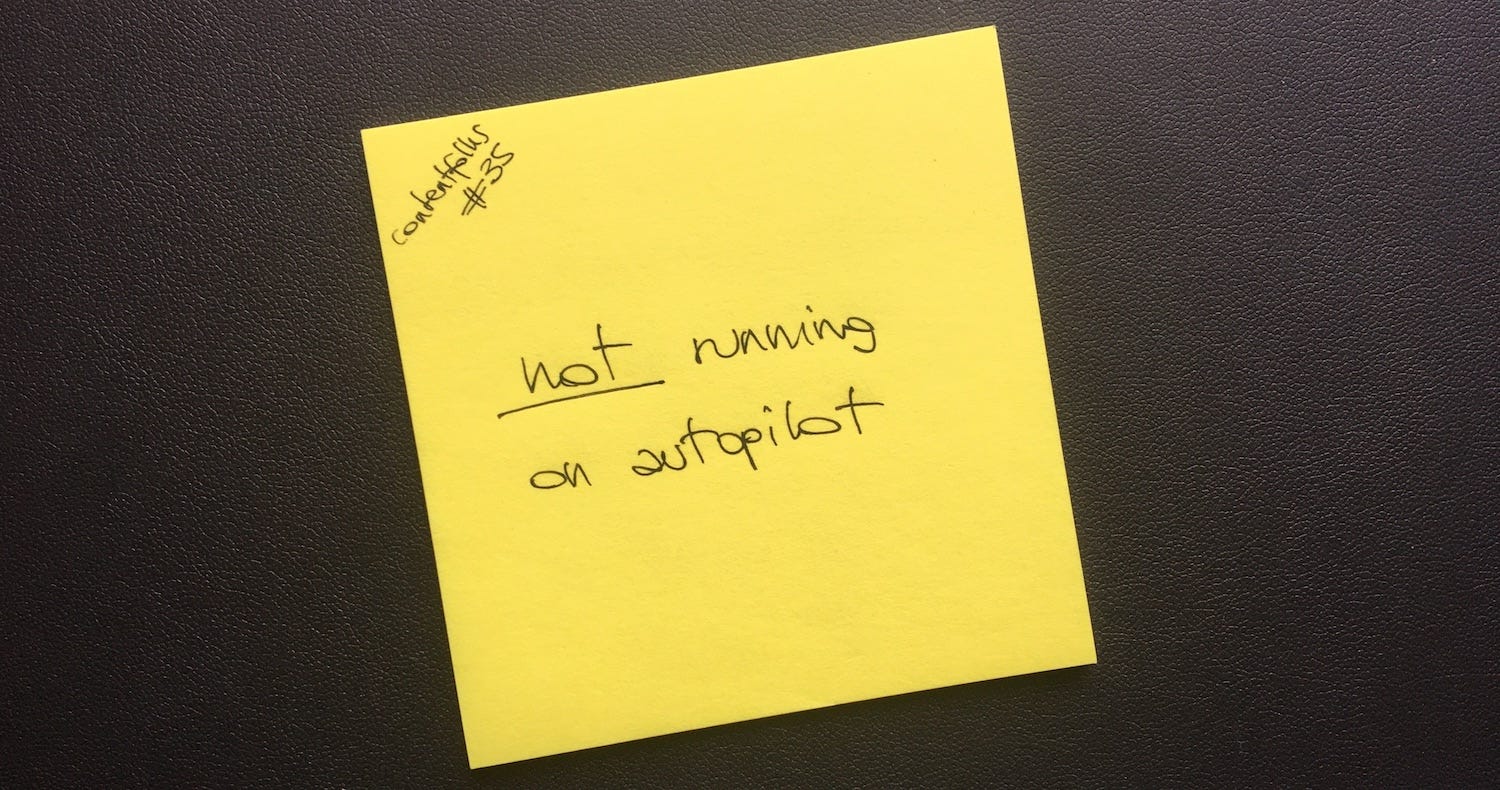 contentfolks
#35
not running
on autopilot